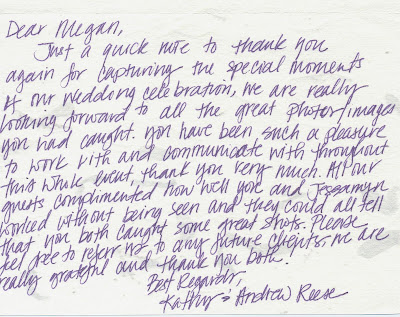 Dear Megan,
Just a quick note to thank you
again for capturing the special moments
at our wedding celebration, we are really
looking forward to all the great photos/images
you had caught. You have been such a pleasure
to work with and communicate with throughout
this whole event, thank you very much. All our
guests complimented how well you and Jessamyn
worked without being seen and they could all tell
that you both caught some great shots. Please
feel free to refer us to any future clients. We are
really grateful and thank you both!
Best Regards,
Kathy & Andrew Reese